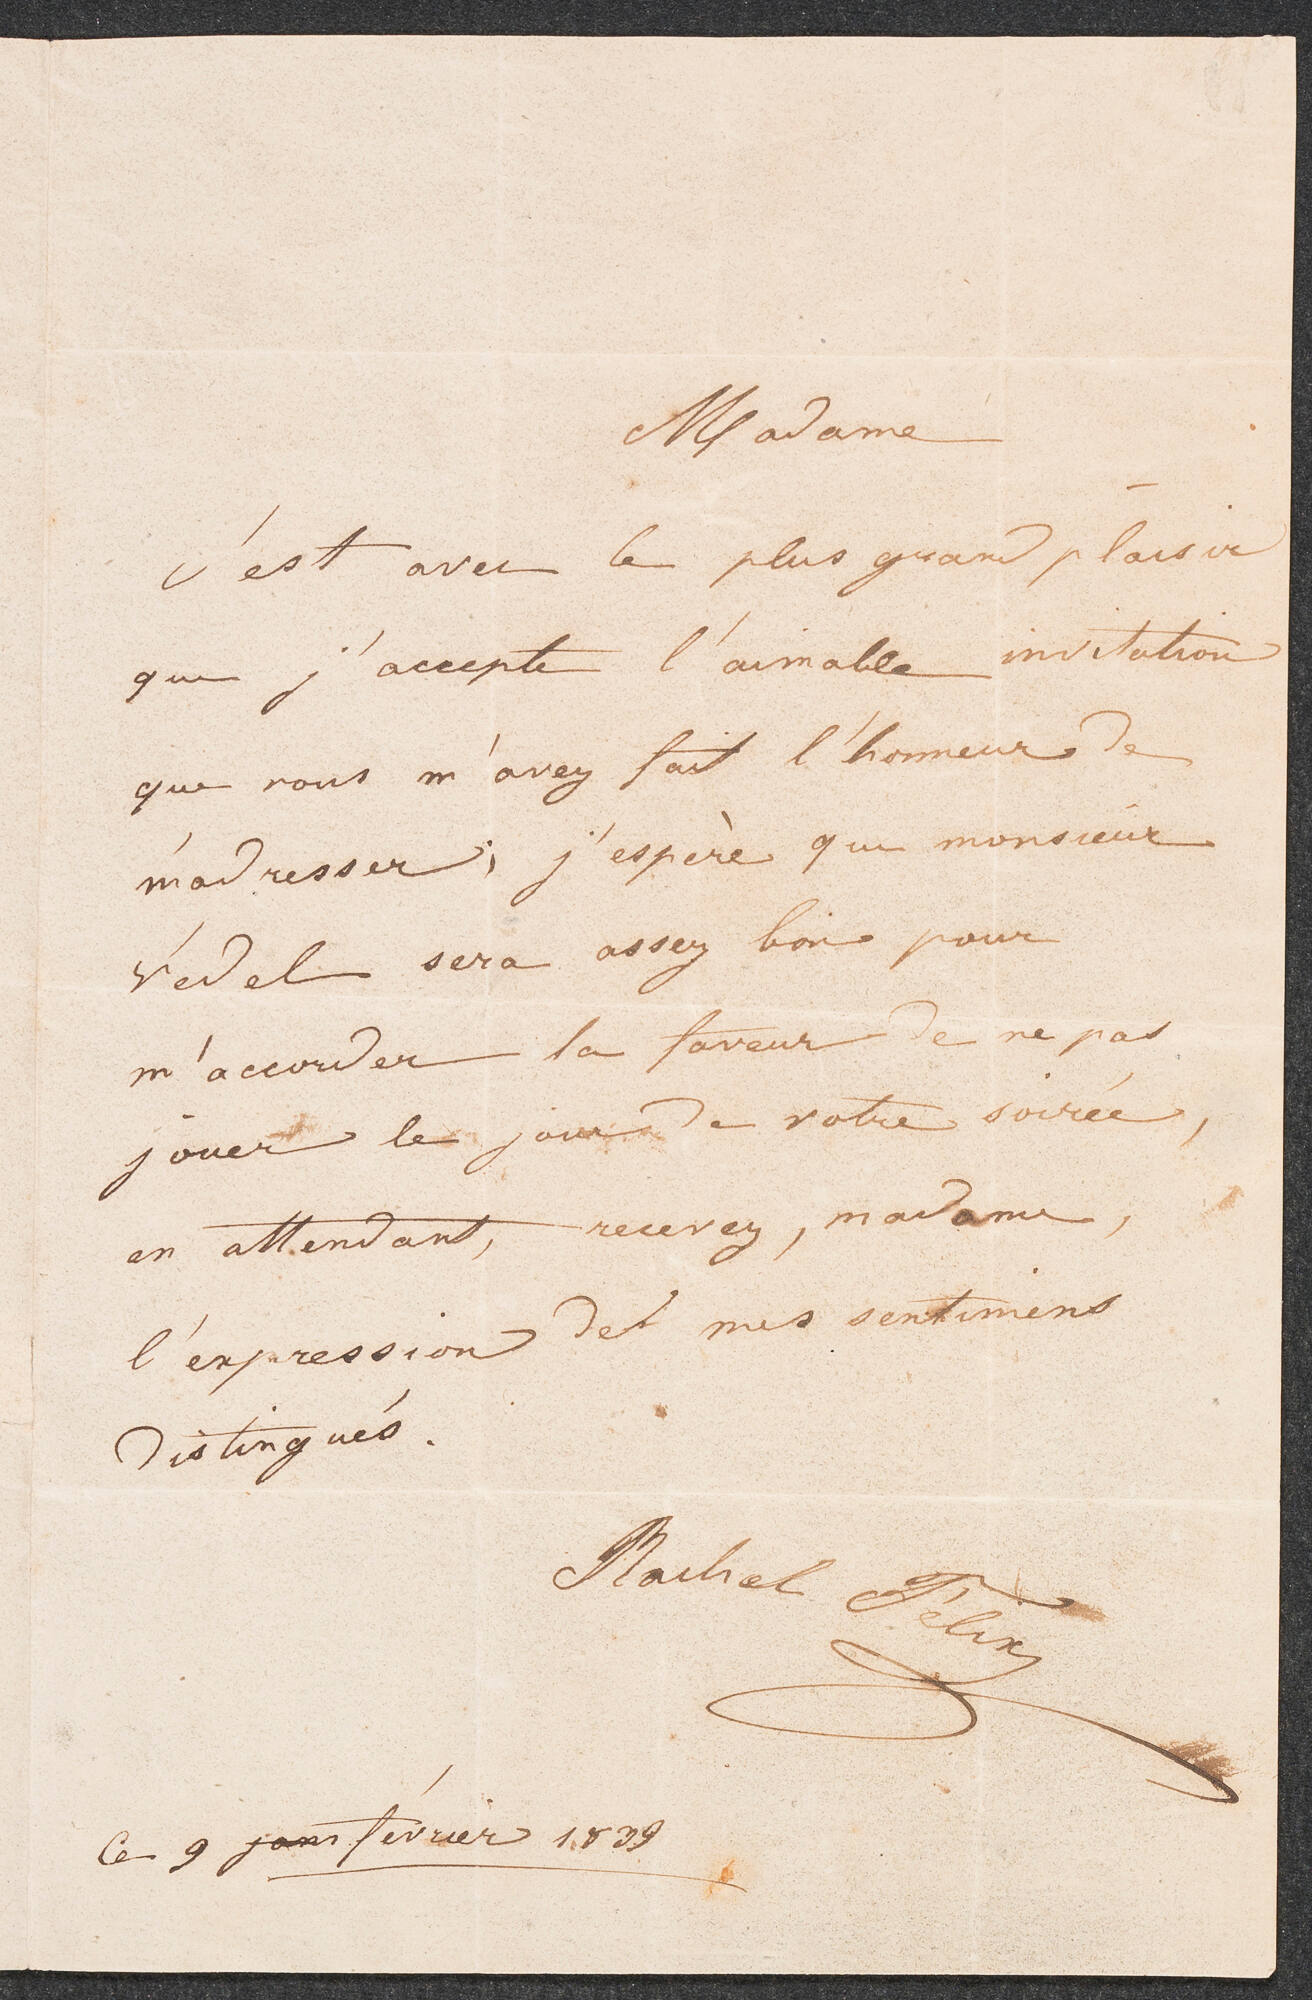 Madame
c'est avec le plus grand plaisir
que j'accepte l'aimable invitation
que vous m'avez fait l'honneur de
m'adresser; j'espère que monsieur
Védel sera assez bon pour
m'accorder la faveur de ne pas
jouer le jour de votre soirée,
en attendant, recevez, madame,
l'expression de mes sentimens
distingués.
Rachel Félix
Ce 9 janv février 1839